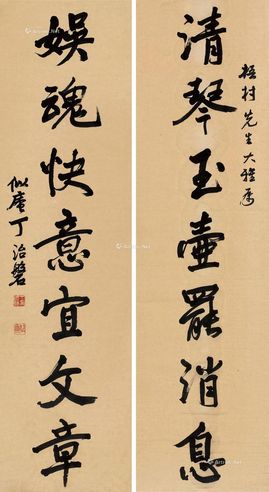 极村先生大雅属
清琴玉壺罷消息
娛魂快意宜文章
似庵丁治磐